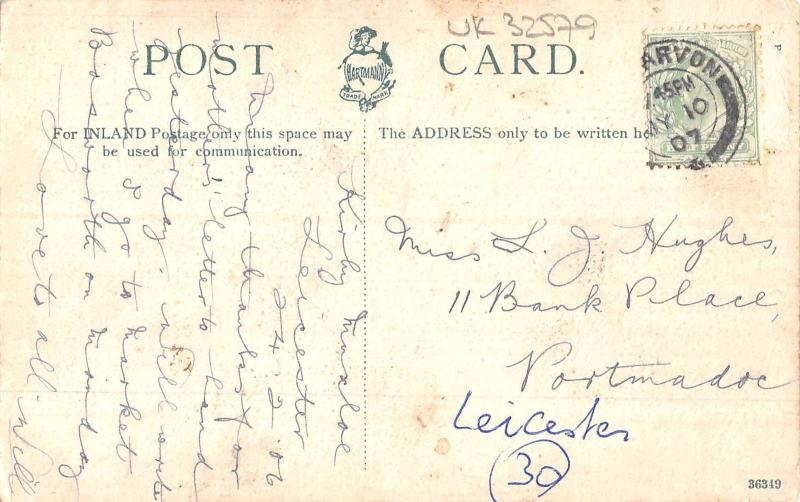 UK 32579
POST CARD.
HARTMANN
TRADE MARK
For INLAND Postage only this space may
be used for communication.
The ADDRESS only to be written he
ARVON
45PM
MY 10
07
Kirby Muxloe
Leicester
24.2.06
many thanks for
mother's letter to hand
yesterday. Will write
when I go to Market
Bosworth on monday
Love to all Will
Miss L. J. Hughes,
11 Bank Place,
Portmadoc
Leicester
30
36349